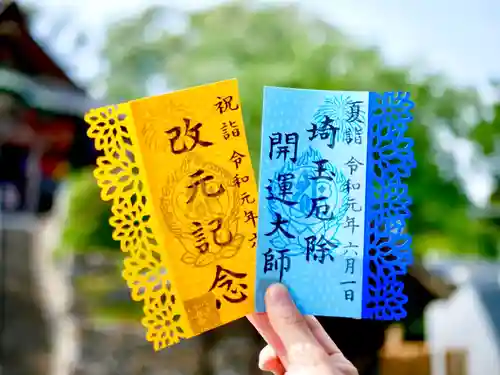 祝詣
改元記念
令和元年六
夏詣
令和元年六月一日
埼玉厄除
開運大師